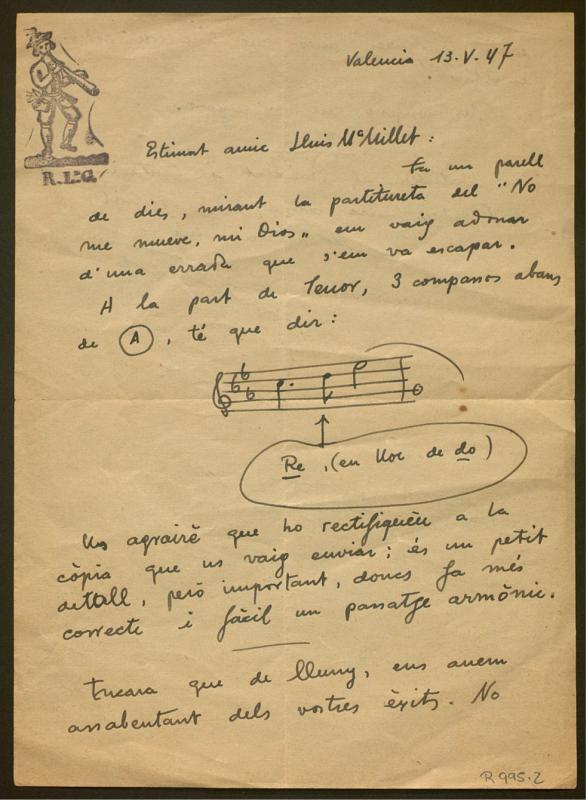 Valencia 13·V·47
R.Lª.G.
Estimat amic Lluis Mª Millet :
Fa un parell
de dies, mirant la partitureta del "No
me mueve, mi Dios" em vaig adonar
d'una errada que s'em va escapar.
A la part de Tenor, 3 compassos abans
de A, té que dir:
Re, (en lloc de do)
Us agrairé que ho rectifiquèu a la
còpia que us vaig enviar; és un petit
dettall, però important, doncs fa més
correcte i fàcil un passatge armònic.
Encara que de lluny, ens anem
assabentant dels vostres èxits. No
R 995·2